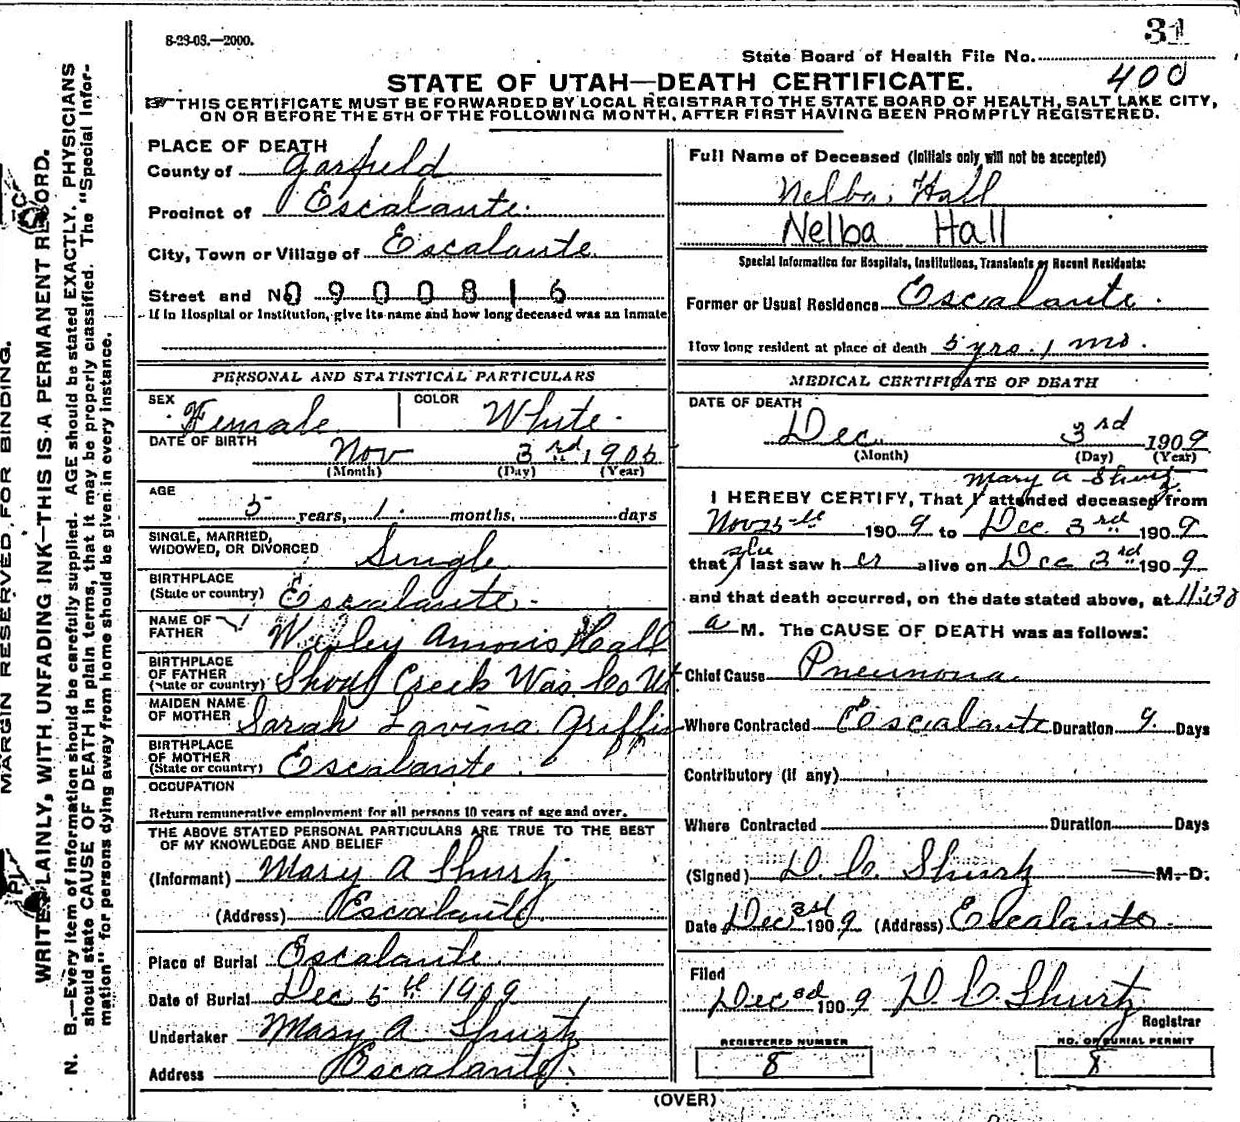 8-23-08.—2000.
31
State Board of Health File No.
400
STATE OF UTAH—DEATH CERTIFICATE.
THIS CERTIFICATE MUST BE FORWARDED BY LOCAL REGISTRAR TO THE STATE BOARD OF HEALTH, SALT LAKE CITY,
ON OR BEFORE THE 5TH OF THE FOLLOWING MONTH, AFTER FIRST HAVING BEEN PROMPTLY REGISTERED.
MARGIN RESERVED FOR BINDING.
WRITE PLAINLY, WITH UNFADING INK—THIS IS A PERMANENT RECORD.
N. B.—Every item of information should be carefully supplied. AGE should be stated EXACTLY. PHYSICIANS
should state CAUSE OF DEATH in plain terms, that it may be properly classified. The "Special Infor-
mation" for persons dying away from home should be given in every instance.
PLACE OF DEATH
County of Garfield
Precinct of Escalante.
City, Town or Village of Escalante
Street and No. 0900816
If in Hospital or Institution, give its name and how long deceased was an inmate
PERSONAL AND STATISTICAL PARTICULARS
SEX Female COLOR White
DATE OF BIRTH Nov 3rd 190
(Month) (Day) (Year)
AGE
5 years, 1 months, days
SINGLE, MARRIED,
WIDOWED, OR DIVORCED Single
BIRTHPLACE
(State or country) Escalante
NAME OF
FATHER Wesley Amonis Hall
BIRTHPLACE
OF FATHER
(State or country) Shoal Creek Was. Co Ut
MAIDEN NAME
OF MOTHER Sarah Lavina Griffin
BIRTHPLACE
OF MOTHER
(State or country) Escalante
OCCUPATION
Return remunerative employment for all persons 10 years of age and over.
THE ABOVE STATED PERSONAL PARTICULARS ARE TRUE TO THE BEST
OF MY KNOWLEDGE AND BELIEF
(Informant) Mary A Shurtz
(Address) Escalante
Place of Burial Escalante
Date of Burial Dec 5th 1909
Undertaker Mary A Shurtz
Address Escalante.
Full Name of Deceased (Initials only will not be accepted)
Nelba Hall
Nelba Hall
Special Information for Hospitals, Institutions, Transients or Recent Residents:
Former or Usual Residence Escalante.
How long resident at place of death 5 yrs. 1 mo.
MEDICAL CERTIFICATE OF DEATH
DATE OF DEATH
Dec 3rd 1909
(Month) (Day) (Year)
Mary A Shurtz
I HEREBY CERTIFY, That I attended deceased from
Nov 25th 1909 to Dec. 3rd 1909
she
that I last saw her alive on Dec 3rd 1909
and that death occurred, on the date stated above, at 11:30
a M. The CAUSE OF DEATH was as follows:
Chief Cause Pneumona
Where Contracted Escalante Duration 9 Days
Contributory (if any)
Where Contracted Duration Days
(Signed) D. C. Shurtz M. D.
Date Dec 3rd 1909 (Address) Escalante
Filed
Dec 3d 1909 D C Shurtz
Registrar
REGISTERED NUMBER
8
NO. OF BURIAL PERMIT
8
(OVER)